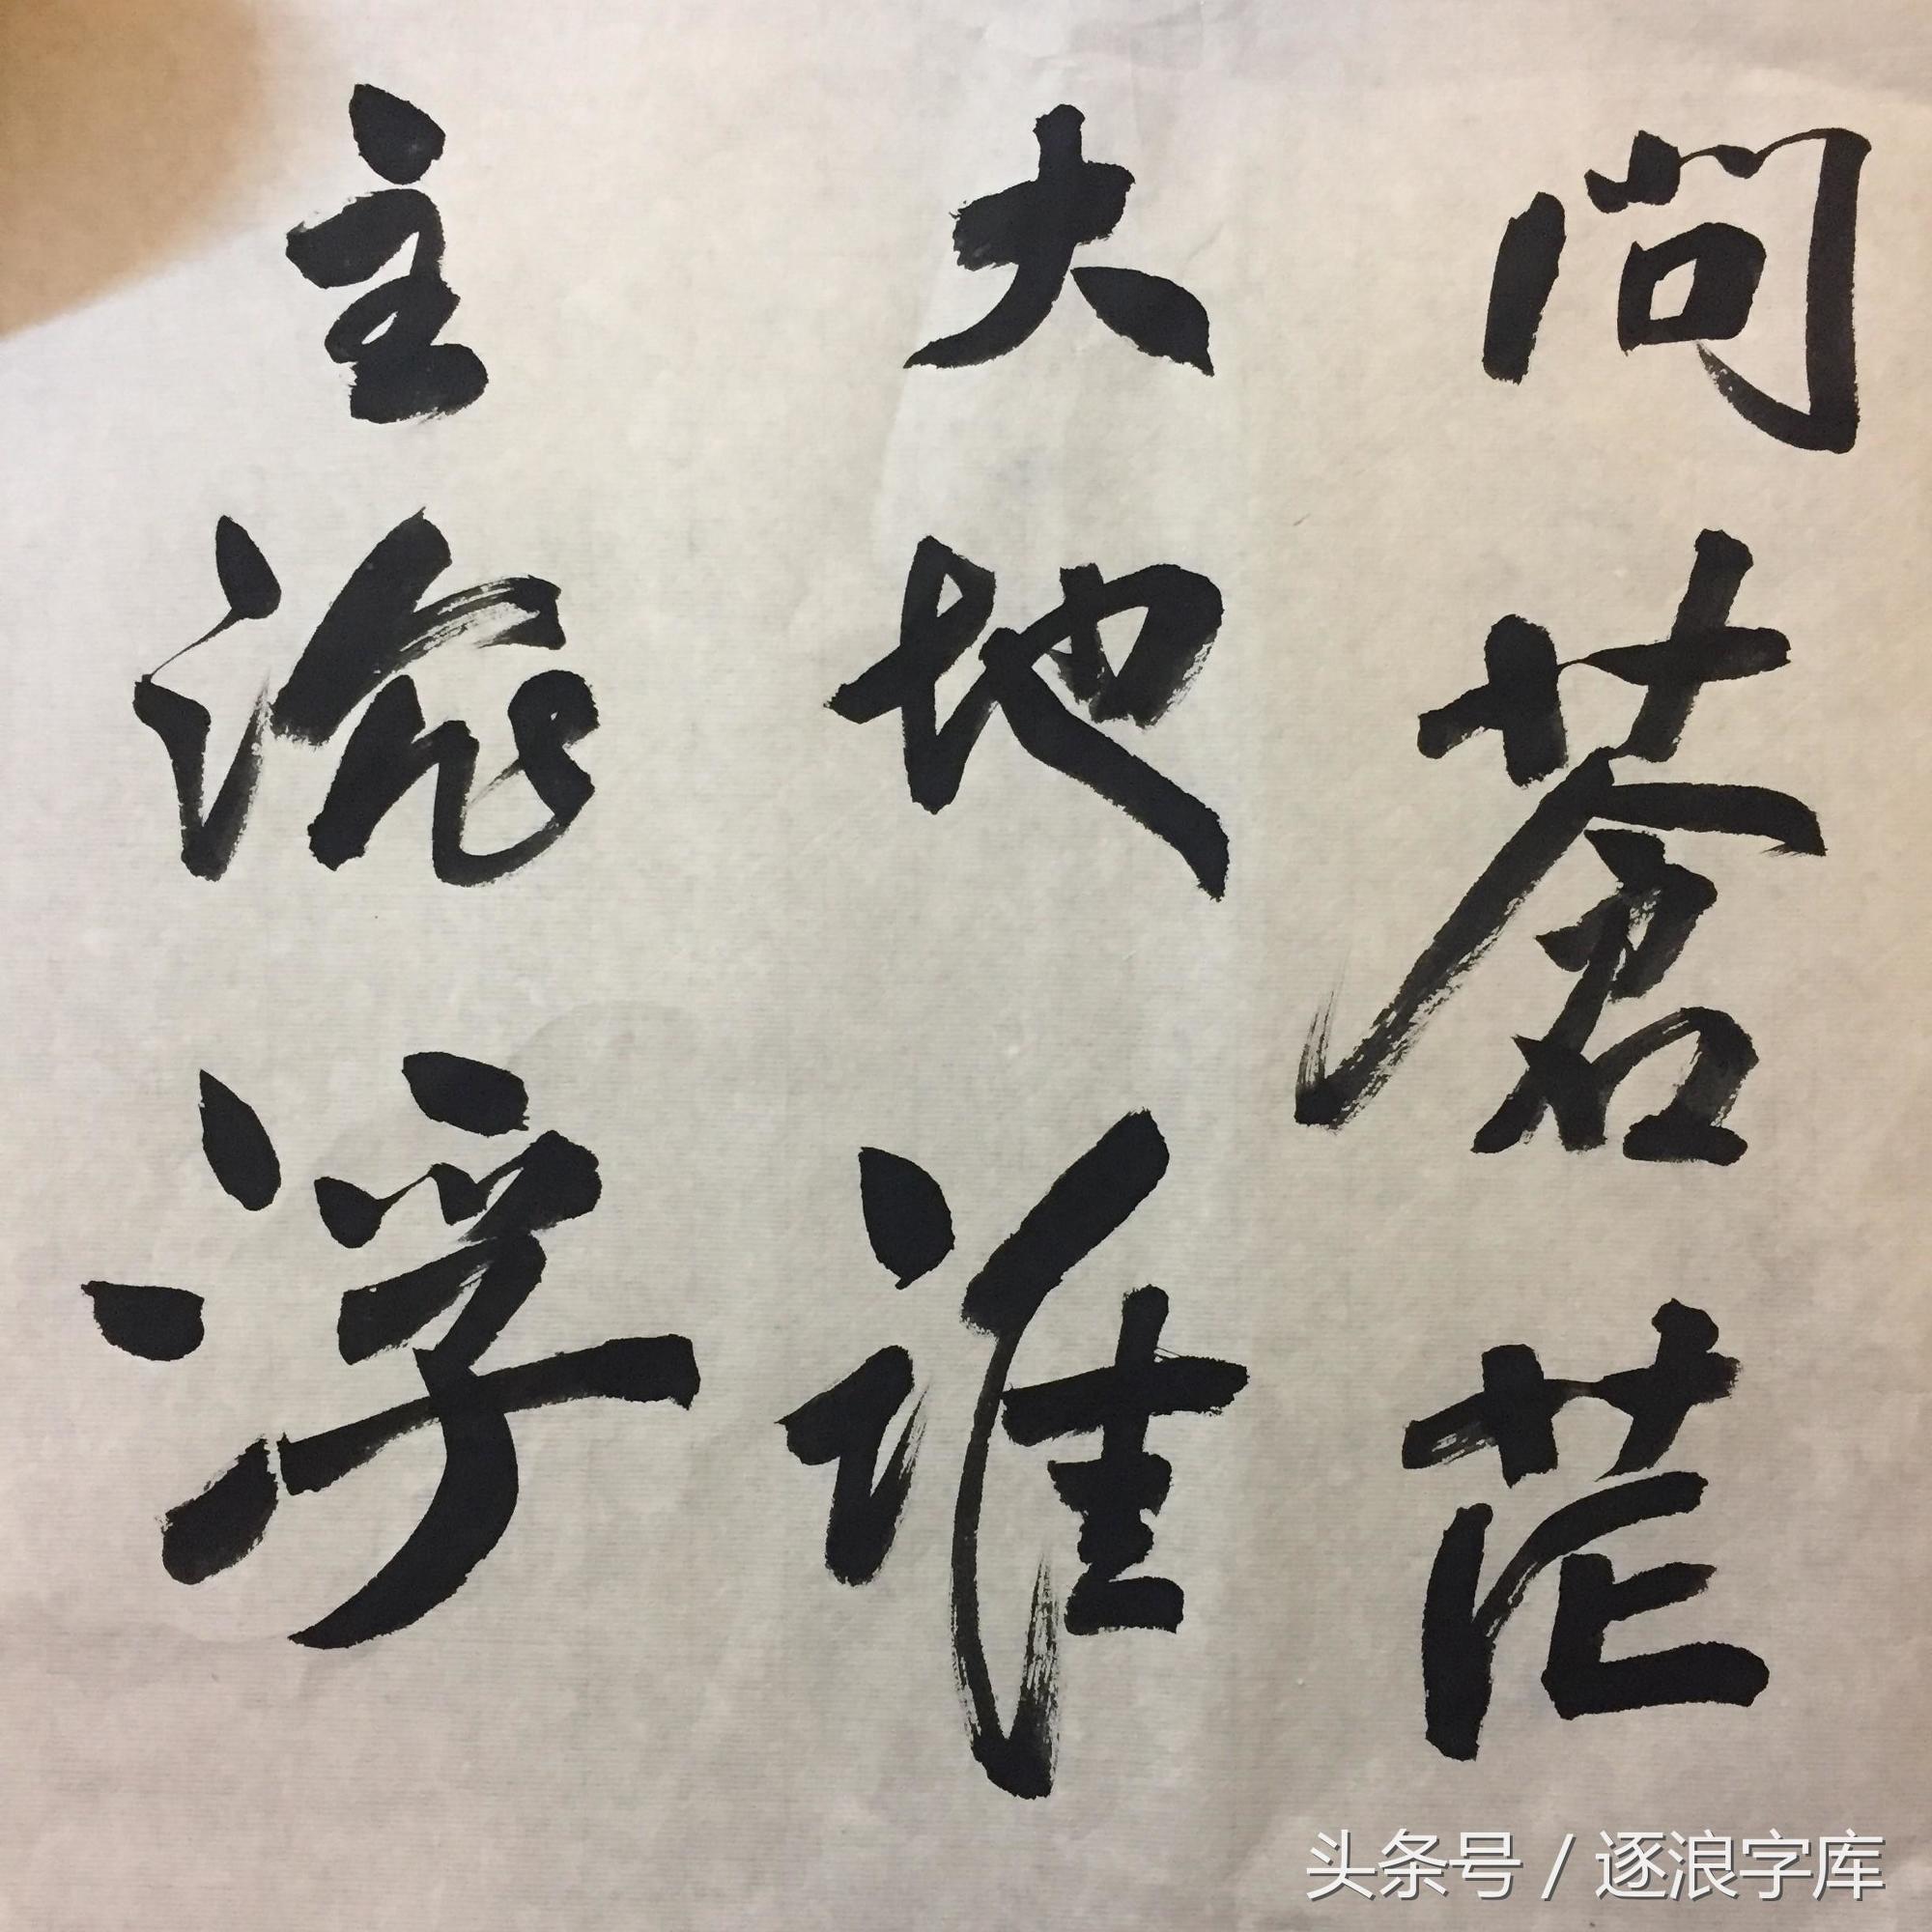 問蒼茫
大地誰
主沉浮
头条号 / 逐浪字库